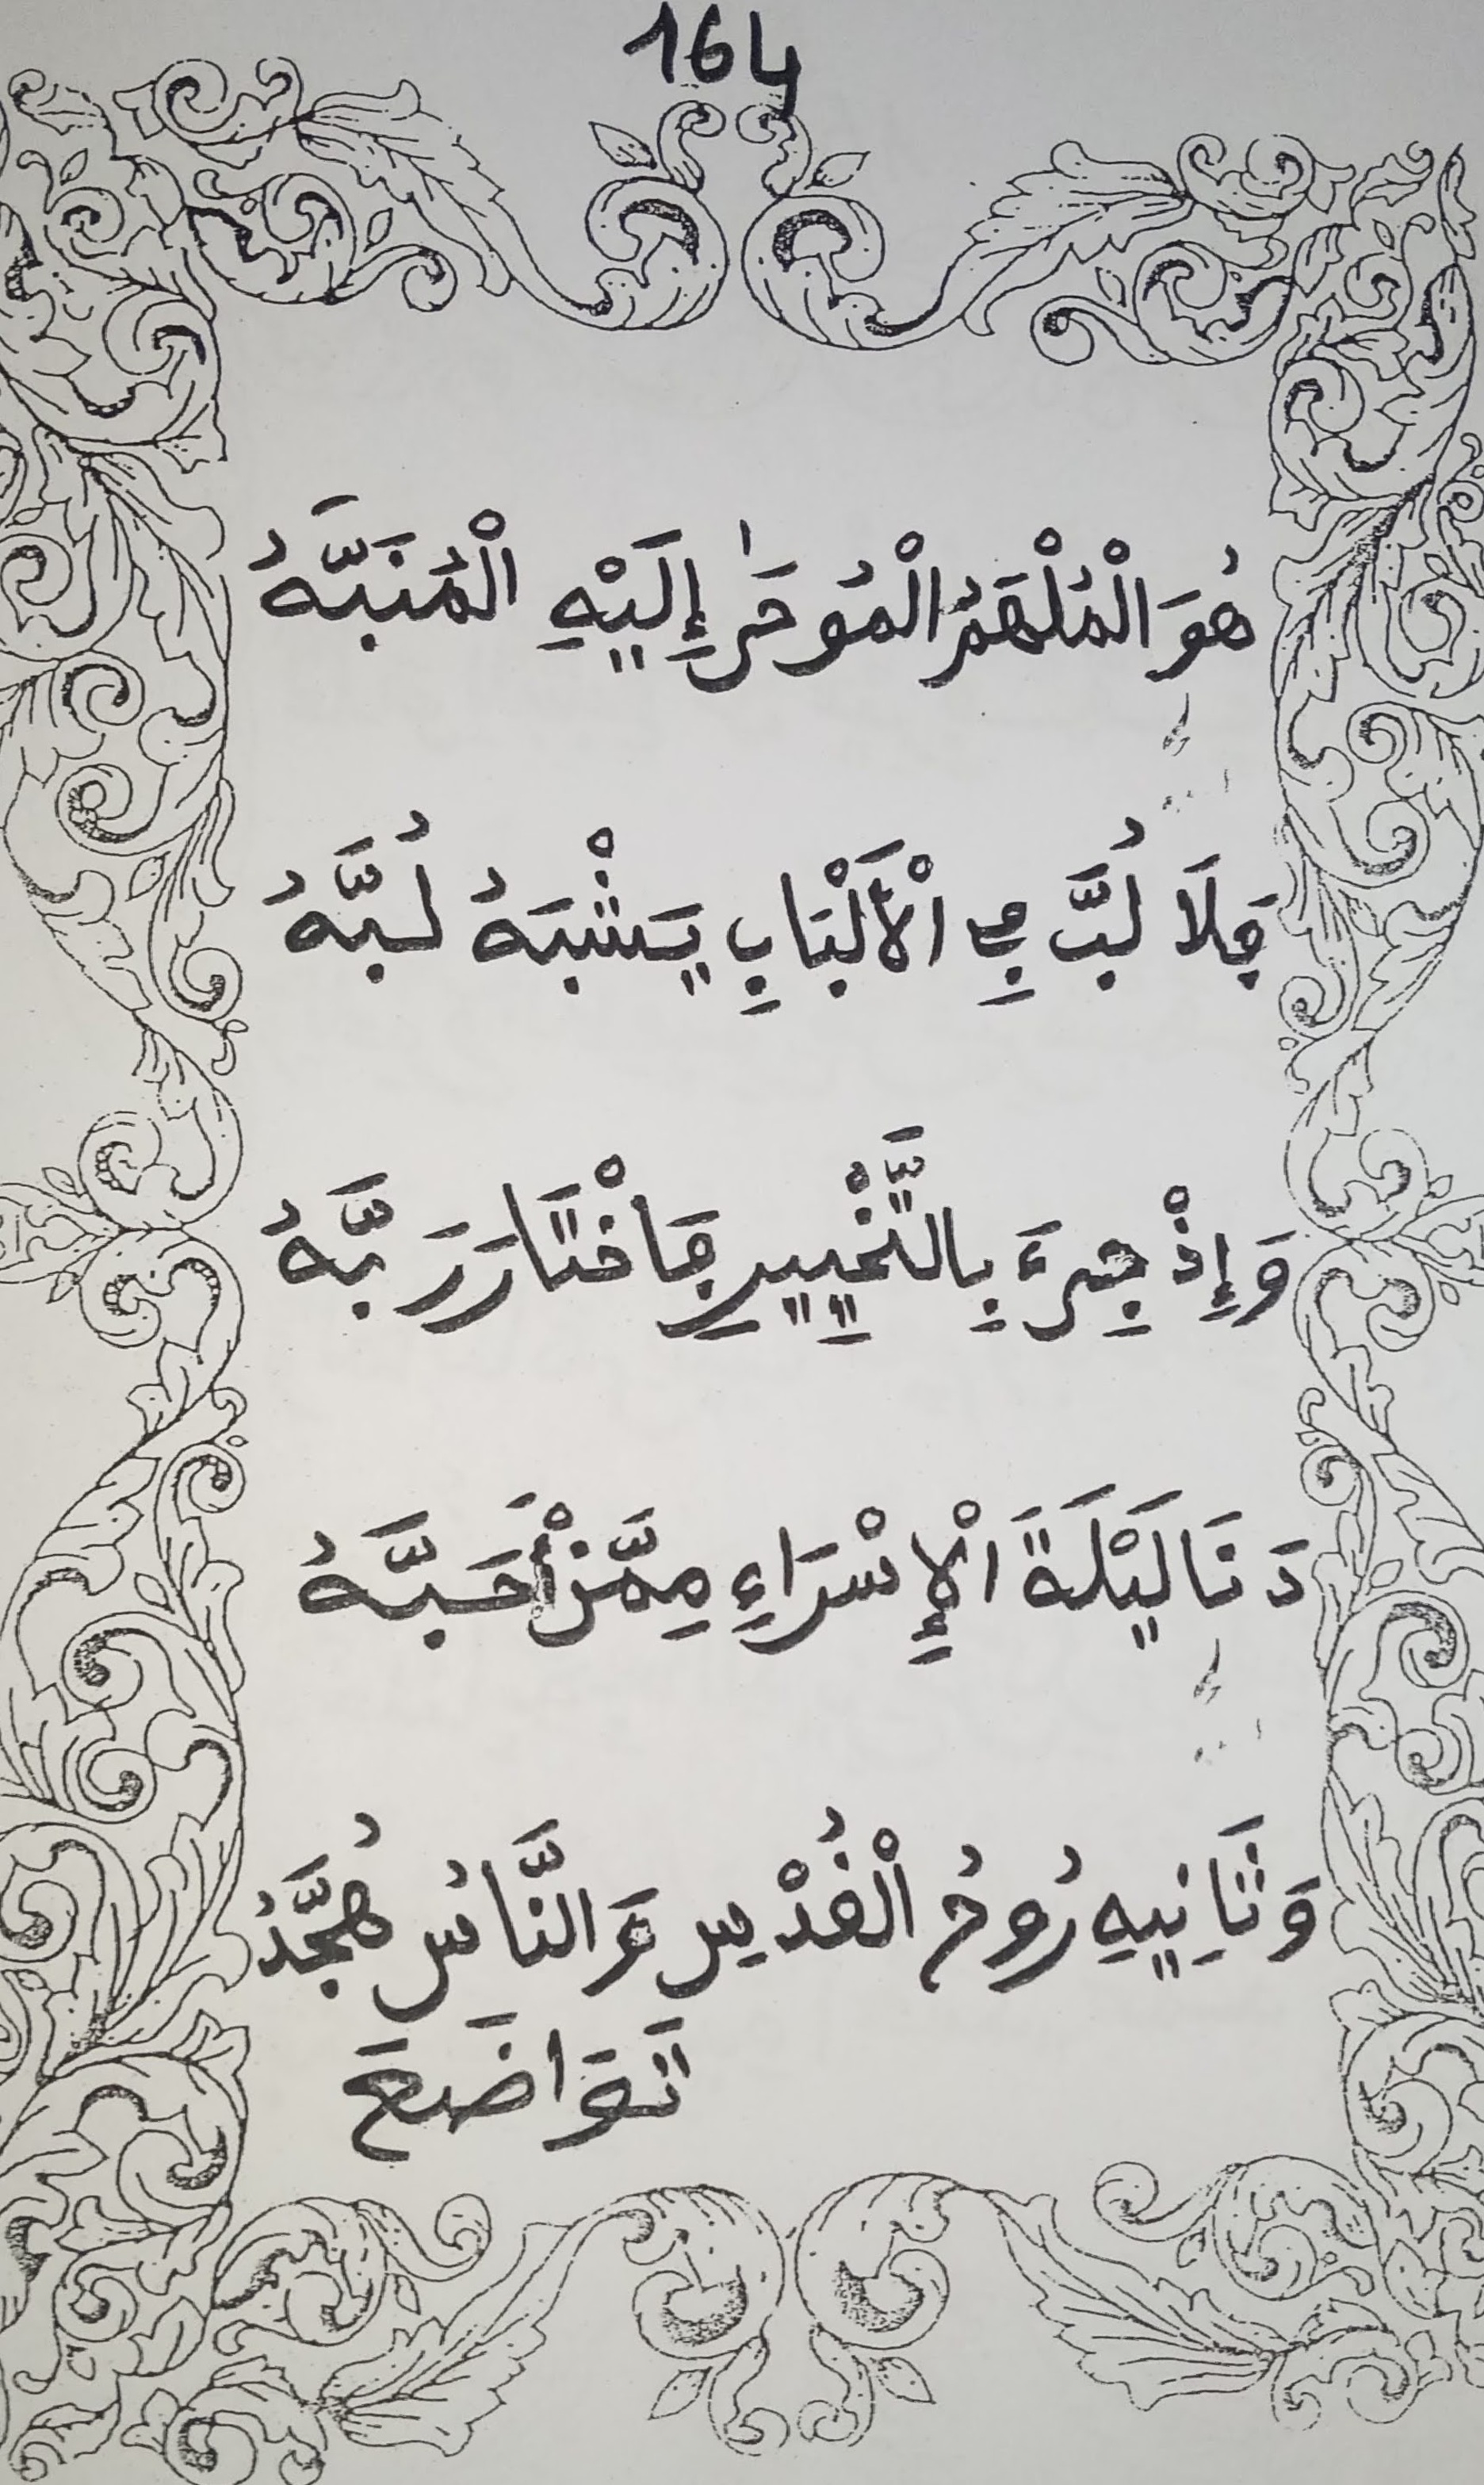 164
هُوَ الْمُلْهَمُ الْمُوحَىٰ إِلَيْهِ الْمُنَبَّهُ
فَلَا لُبَّ فِي اْلْأَلْبَابِ يَشْبَهُ لُبَّهُ
وَإِذْ جِيءَ بِالتَّخْيِيرِ فَاخْتَارَ رَبَّهُ
دَنَا لَيْلَةَ اْلْإِسْرَاءِ مِمَّنْ أَحَبَّهُ
وَثَانِيهِ رُوحُ الْقُدْسِ وَالنَّاسُ هُجَّدُ
تَوَاضَعَ